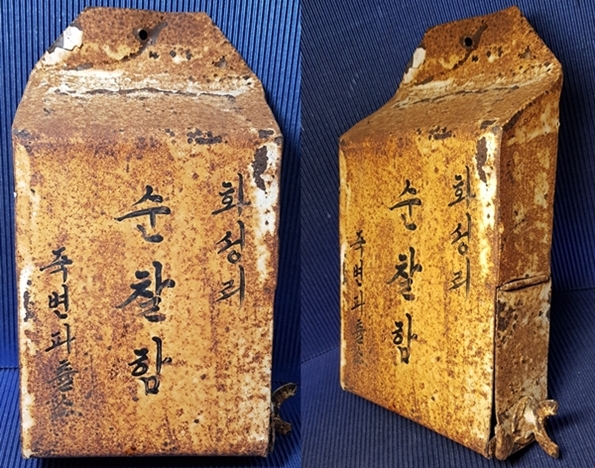 화성리
순찰함
죽변파출소
화성리
순찰함
죽변파출소